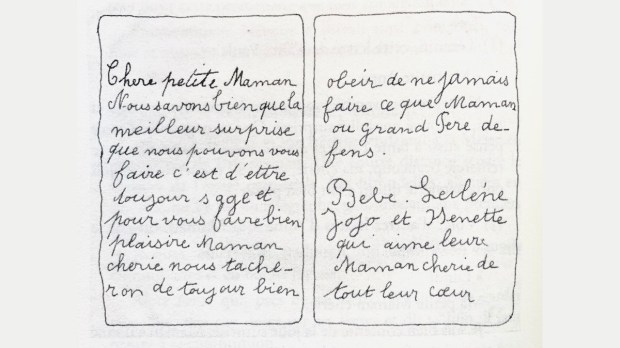 Chere petite Maman
Nous savons bien que la
meilleur surprise
que nous pouvons vous
faire c'est d'êttre
toujour sage et
pour vous faire bien
plaisire Maman
cherie nous tache-
ron de toujour bien
obeir de ne jamais
faire ce que Maman
ou Grand Pere de-
fens.
Bebe. Leiléne
Jojo et Nenette
qui aime leure
Maman cherie de
tout leur cœur